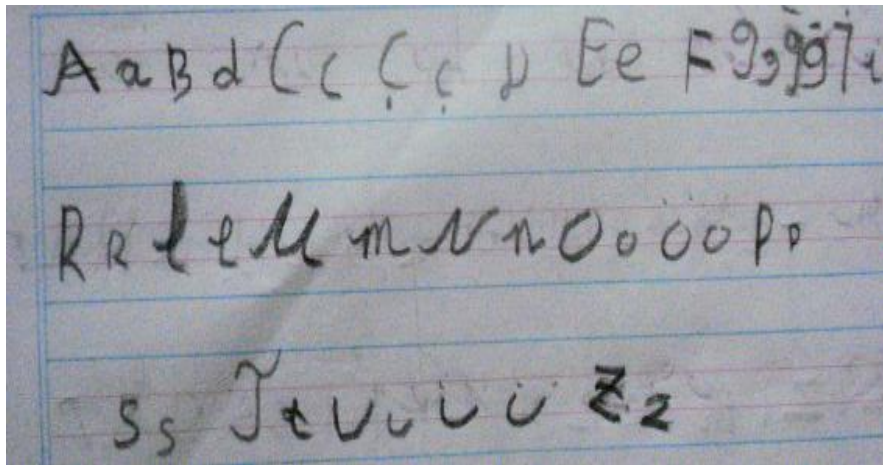 A a B d C c Ç ç D E e F g g ğ ğ İ i
R R l l M m N n O o ö ö P p
S s T t U u ü ü Z z